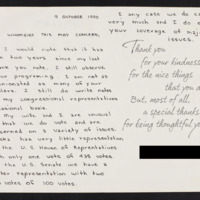 9 OCTOBER 1990
WHOMEVER THIS MAY CONCERN,
I would note that it has
two years since my last
you note. I still observe
programing. I am not as
as many of
I still do write notes
my congressional representatives
book.
My wife and I are unusual
that we do vote and are
on a variety of issues.
has very little representation
the U.S. House of Representatives
only one vote of 435 votes.
the U.S. Senate we have a
representation with two
votes of 100 votes.
I any case we do ca
very much and I do e
your coverage of maj
issues.
Thank you
for your kindness
for the nice things
that you d
But, most of all,
a special thanks
for being thoughtful yo